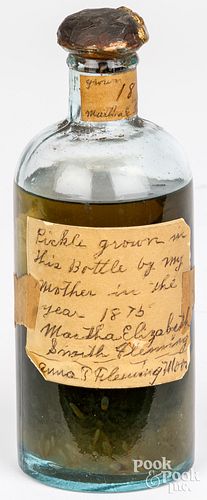 grown
18
martha E
Pickle grown in
this Bottle by my
mother in the
year 1875
Martha Elizabeth
Smith Fleming
Anna T Fleming
Pook & Pook
inc.